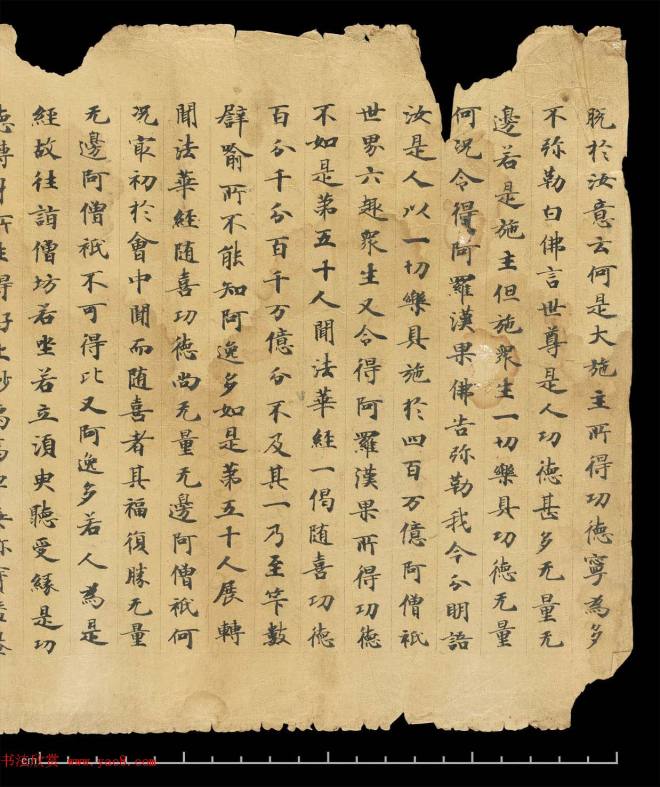 脫於汝意云何是大施主所得功德寧為多
不弥勒白佛言世尊是人功德甚多无量无
邊若是施主但施衆生一切樂具功德无量
何况令得阿羅漢果佛告弥勒我今分明語
汝是人以一切樂具施於四百万億阿僧祇
世界六趣衆生又令得阿羅漢果所得功德
不如是第五十人聞法華經一偈随喜功德
百分千分百千万億分不及其一乃至筭數
譬喻所不能知阿逸多如是第五十人展轉
聞法華經随喜功德尚无量无邊阿僧祇何
况冣初於會中聞而随喜者其福復勝无量
无邊阿僧祇不可得比又阿逸多若人為是
經故往詣僧坊若坐若立湏臾聽受縁是功
德轉身所生得好上妙
cm
书法欣赏 www.yac8.com